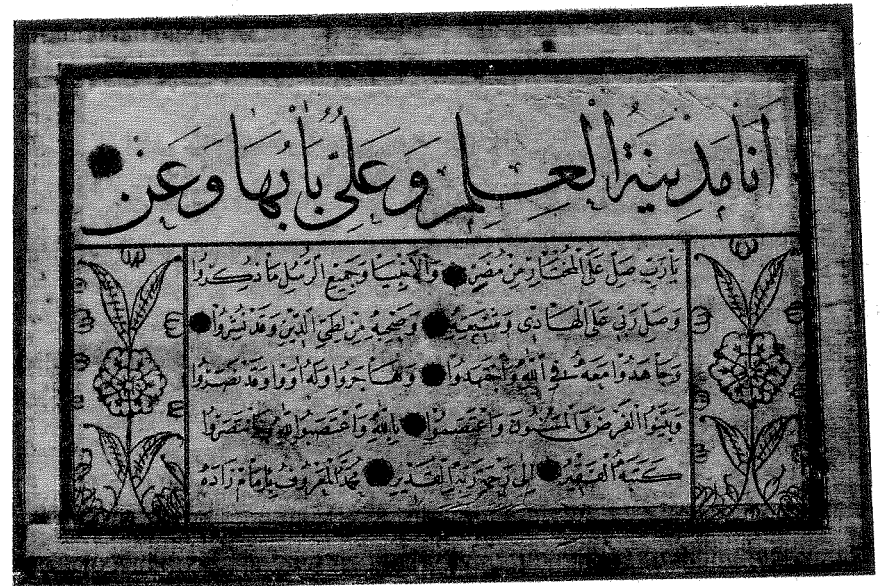 أَنَا مَدِينَةُ الْعِلْمِ وَعَلِيٌّ بَابُهَا وَعَنْ
يَا رَبِّ صَلِّ عَلَى الْمُخْتَارِ مِنْ مُضَرٍ وَالْأَنْبِيَا وَجَمِيعِ الرُّسْلِ مَا ذُكِرُوا
وَصَلِّ رَبِّي عَلَى الْهَادِي وَشِيعَتِهِ وَصَحْبِهِ مَنْ لِطَيِّ الدِّينِ قَدْ نَشَرُوا
وَجَاهَدُوا مَعَهُ فِي اللهِ وَاجْتَهَدُوا وَهَاجَرُوا وَلَهُ آوَوْا وَقَدْ نَصَرُوا
وَبَيَّنُوا الْفَرْضَ وَالْمَسْنُونَ وَاعْتَصَبُوا لِلهِ وَاعْتَصَمُوا بِاللهِ فَانْتَصَرُوا
كَتَبَهُ الْفَقِيرُ إِلَى رَحْمَةِ رَبِّهِ الْقَدِيرِ مُحَمَّد الْمَعْرُوفُ بِإِمَام زَادَه